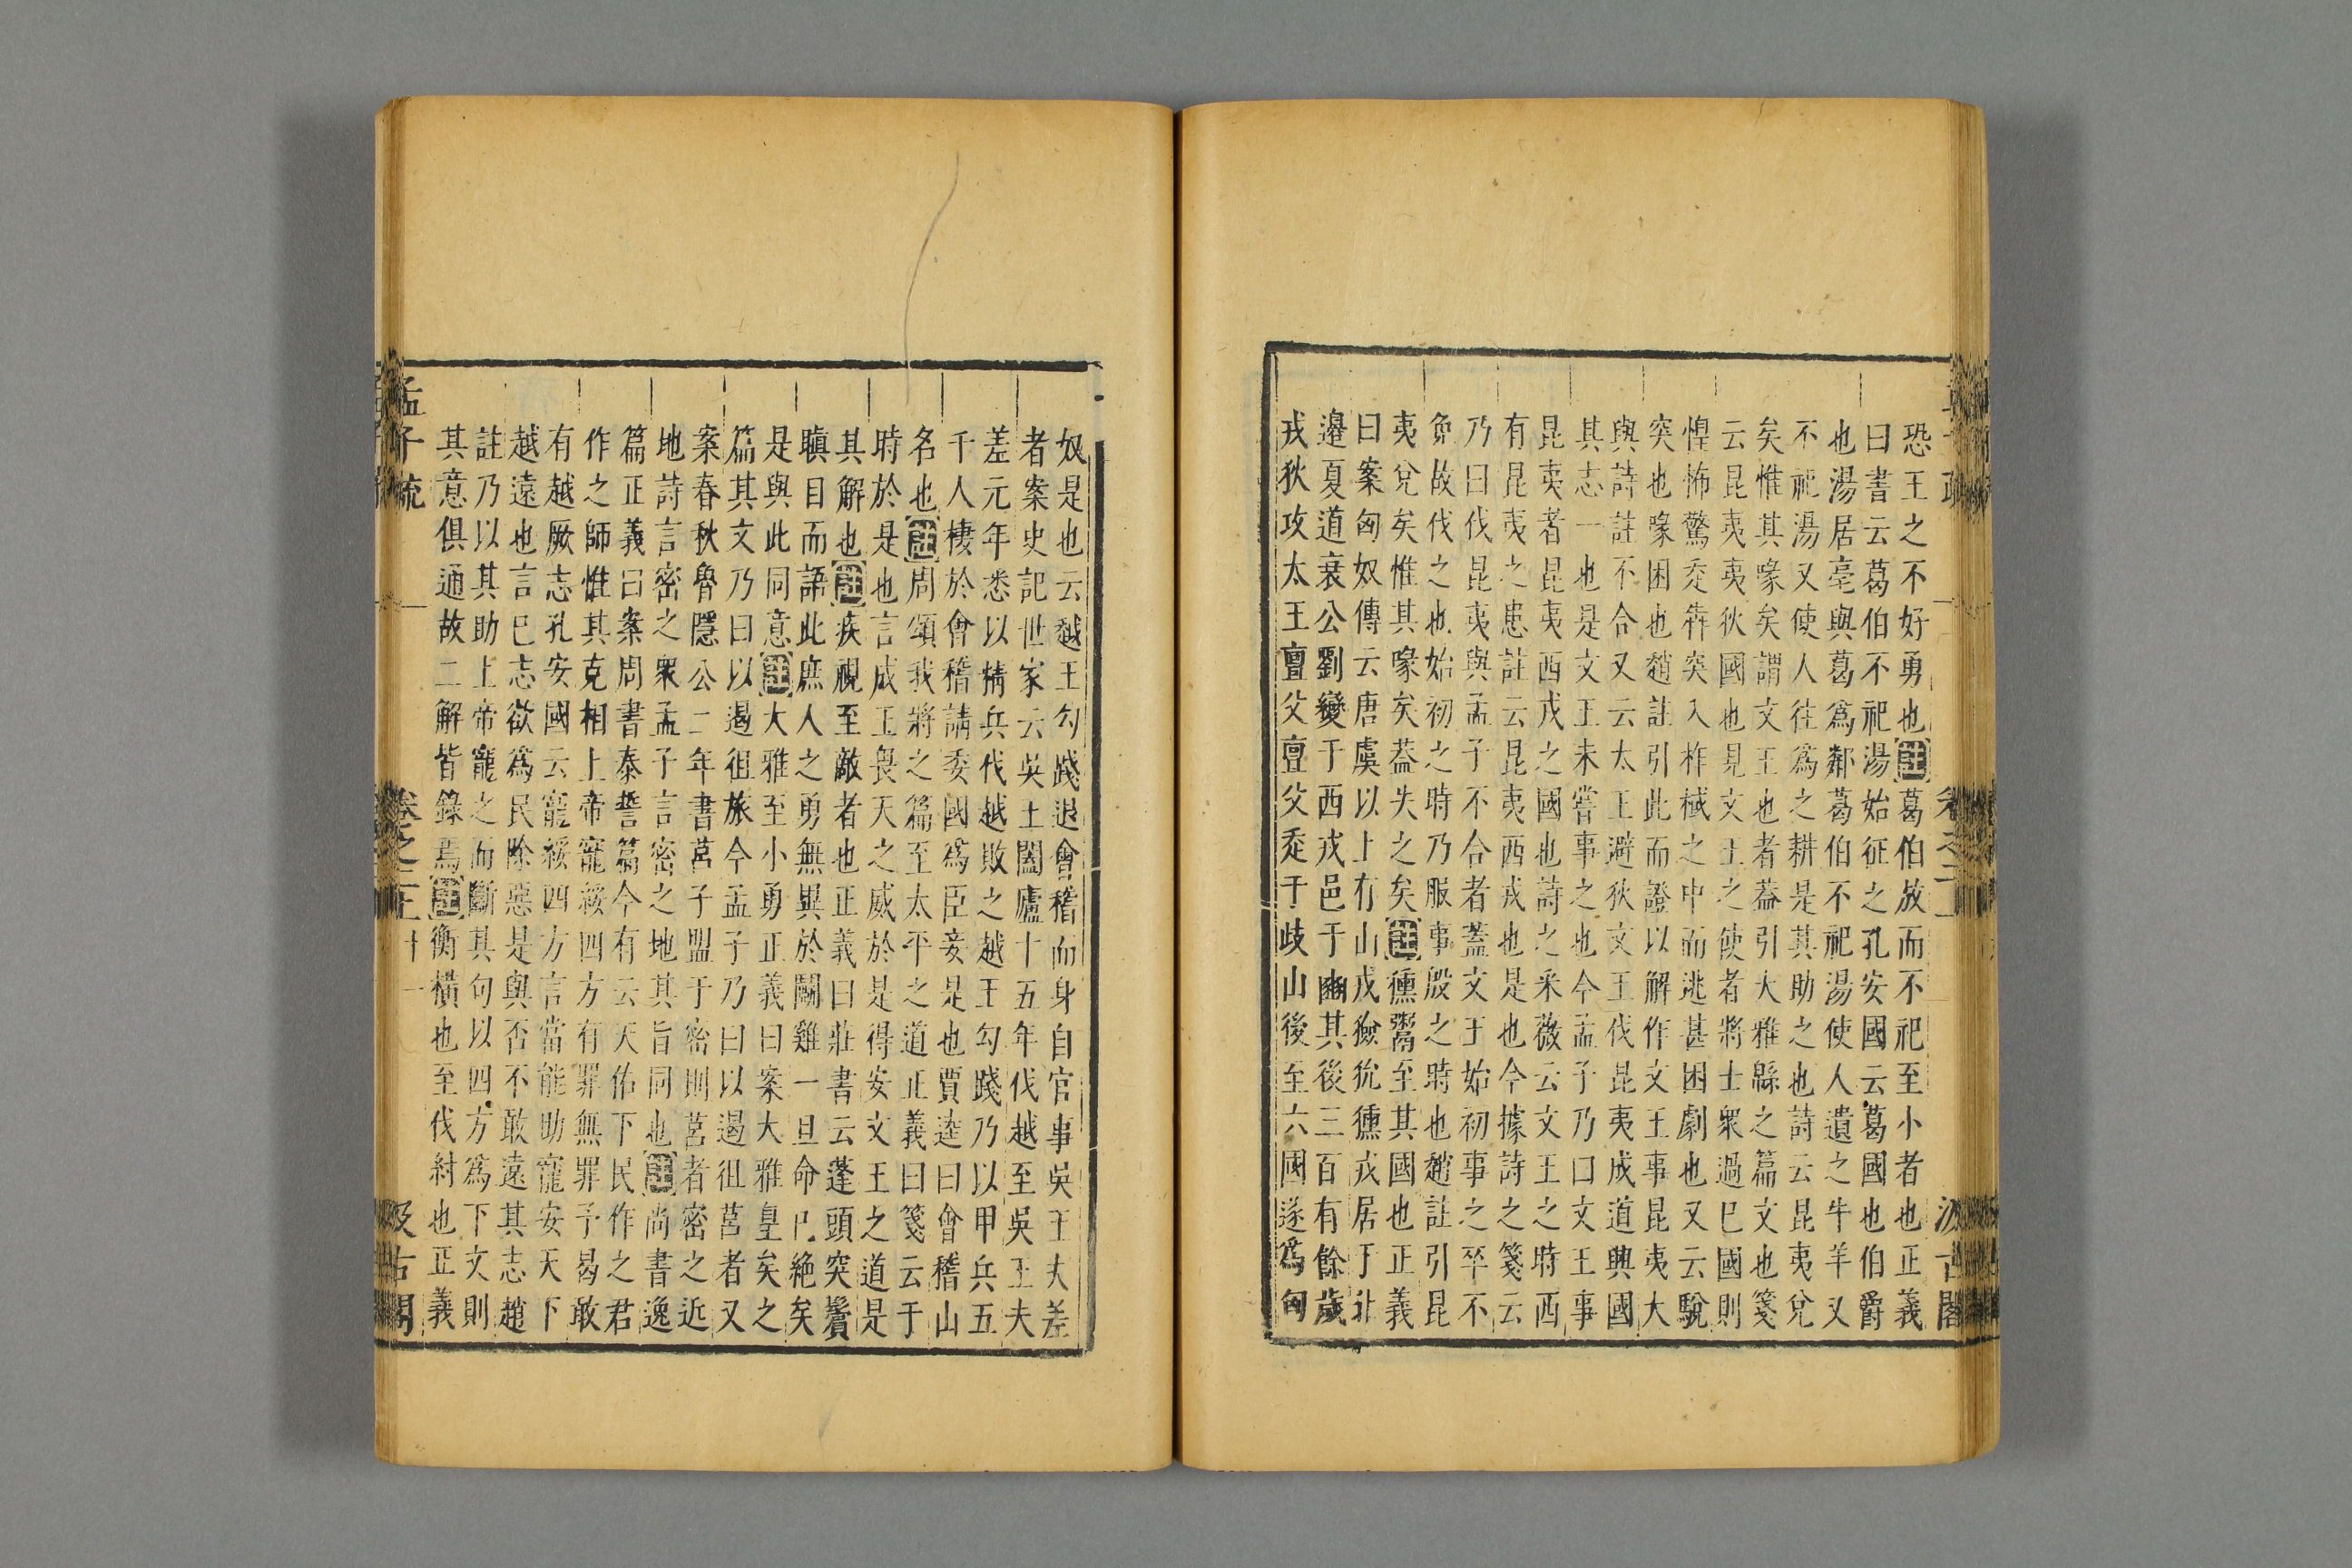 恐王之不好勇也註葛伯放而不祀至小者也正義
曰書云葛伯不祀湯始征之孔安國云葛國也伯爵
也湯居亳與葛爲鄰葛伯不祀湯使人遺之牛羊又
不祀湯又使人往爲之耕是其助之也詩云昆夷兌
矣惟其喙矣謂文王也者葢引大雅緜之篇文也箋
云昆夷夷狄國也見文王之使者將士衆過巳國則
惶怖驚走奔突入柞棫之中而逃甚困劇也又云駾
突也喙困也趙註引此而證以解作文王事昆夷大
與詩註不合又云太王避狄文王伐昆夷成道興國
其志一也是文王未嘗事之也今孟子乃曰文王事
昆夷者昆夷西戎之國也詩之采薇云文王之時西
有昆夷之患註云昆夷西戎也是也今據詩之箋云
乃曰伐昆夷與孟子不合者蓋文王始初事之卒不
免故伐之也始初之時乃服事殷之時也趙註引昆
夷兌矣惟其喙矣葢失之矣註獯鬻至其國也正義
曰案匈奴傳云唐虞以上有山戎獫狁獯戎居于北
邉夏道衰公劉變于西戎邑于豳其後三百有餘歲
戎狄攻太王亶父亶父走于歧山後至六國遂爲匈
奴是也云越王勾踐退會稽而身自官事吳王夫差
者案史記世家云吳王闔廬十五年伐越至吳王夫
差元年悉以精兵伐越敗之越王勾踐乃以甲兵五
千人棲於會稽請委國爲臣妾是也賈逵曰會稽山
名也註周頌我將之篇至太平之道正義曰箋云于
時於是也言成王畏天之威於是得安文王之道是
其解也註疾視至敵者也正義曰莊書云蓬頭突鬢
瞋目而語此庶人之勇無異於鬬雞一旦命巳絶矣
是與此同意註大雅至小勇正義曰案大雅皇矣之
篇其文乃曰以遏徂旅今孟子乃曰以遏徂莒者又
案春秋魯隱公二年書莒子盟于密則莒者密之近
地詩言密之衆孟子言密之地其旨同也註尚書逸
篇正義曰案周書泰誓篇今有云天佑下民作之君
作之師惟其克相上帝寵綏四方有罪無罪予曷敢
有越厥志孔安國云寵綏四方言當能助寵安天下
越遠也言巳志欲爲民除惡是與否不敢遠其志趙
註乃以其助上帝寵之而斷其句以四方爲下文則
其意俱通故二解皆錄焉註衡橫也至伐紂也正義
孟子疏